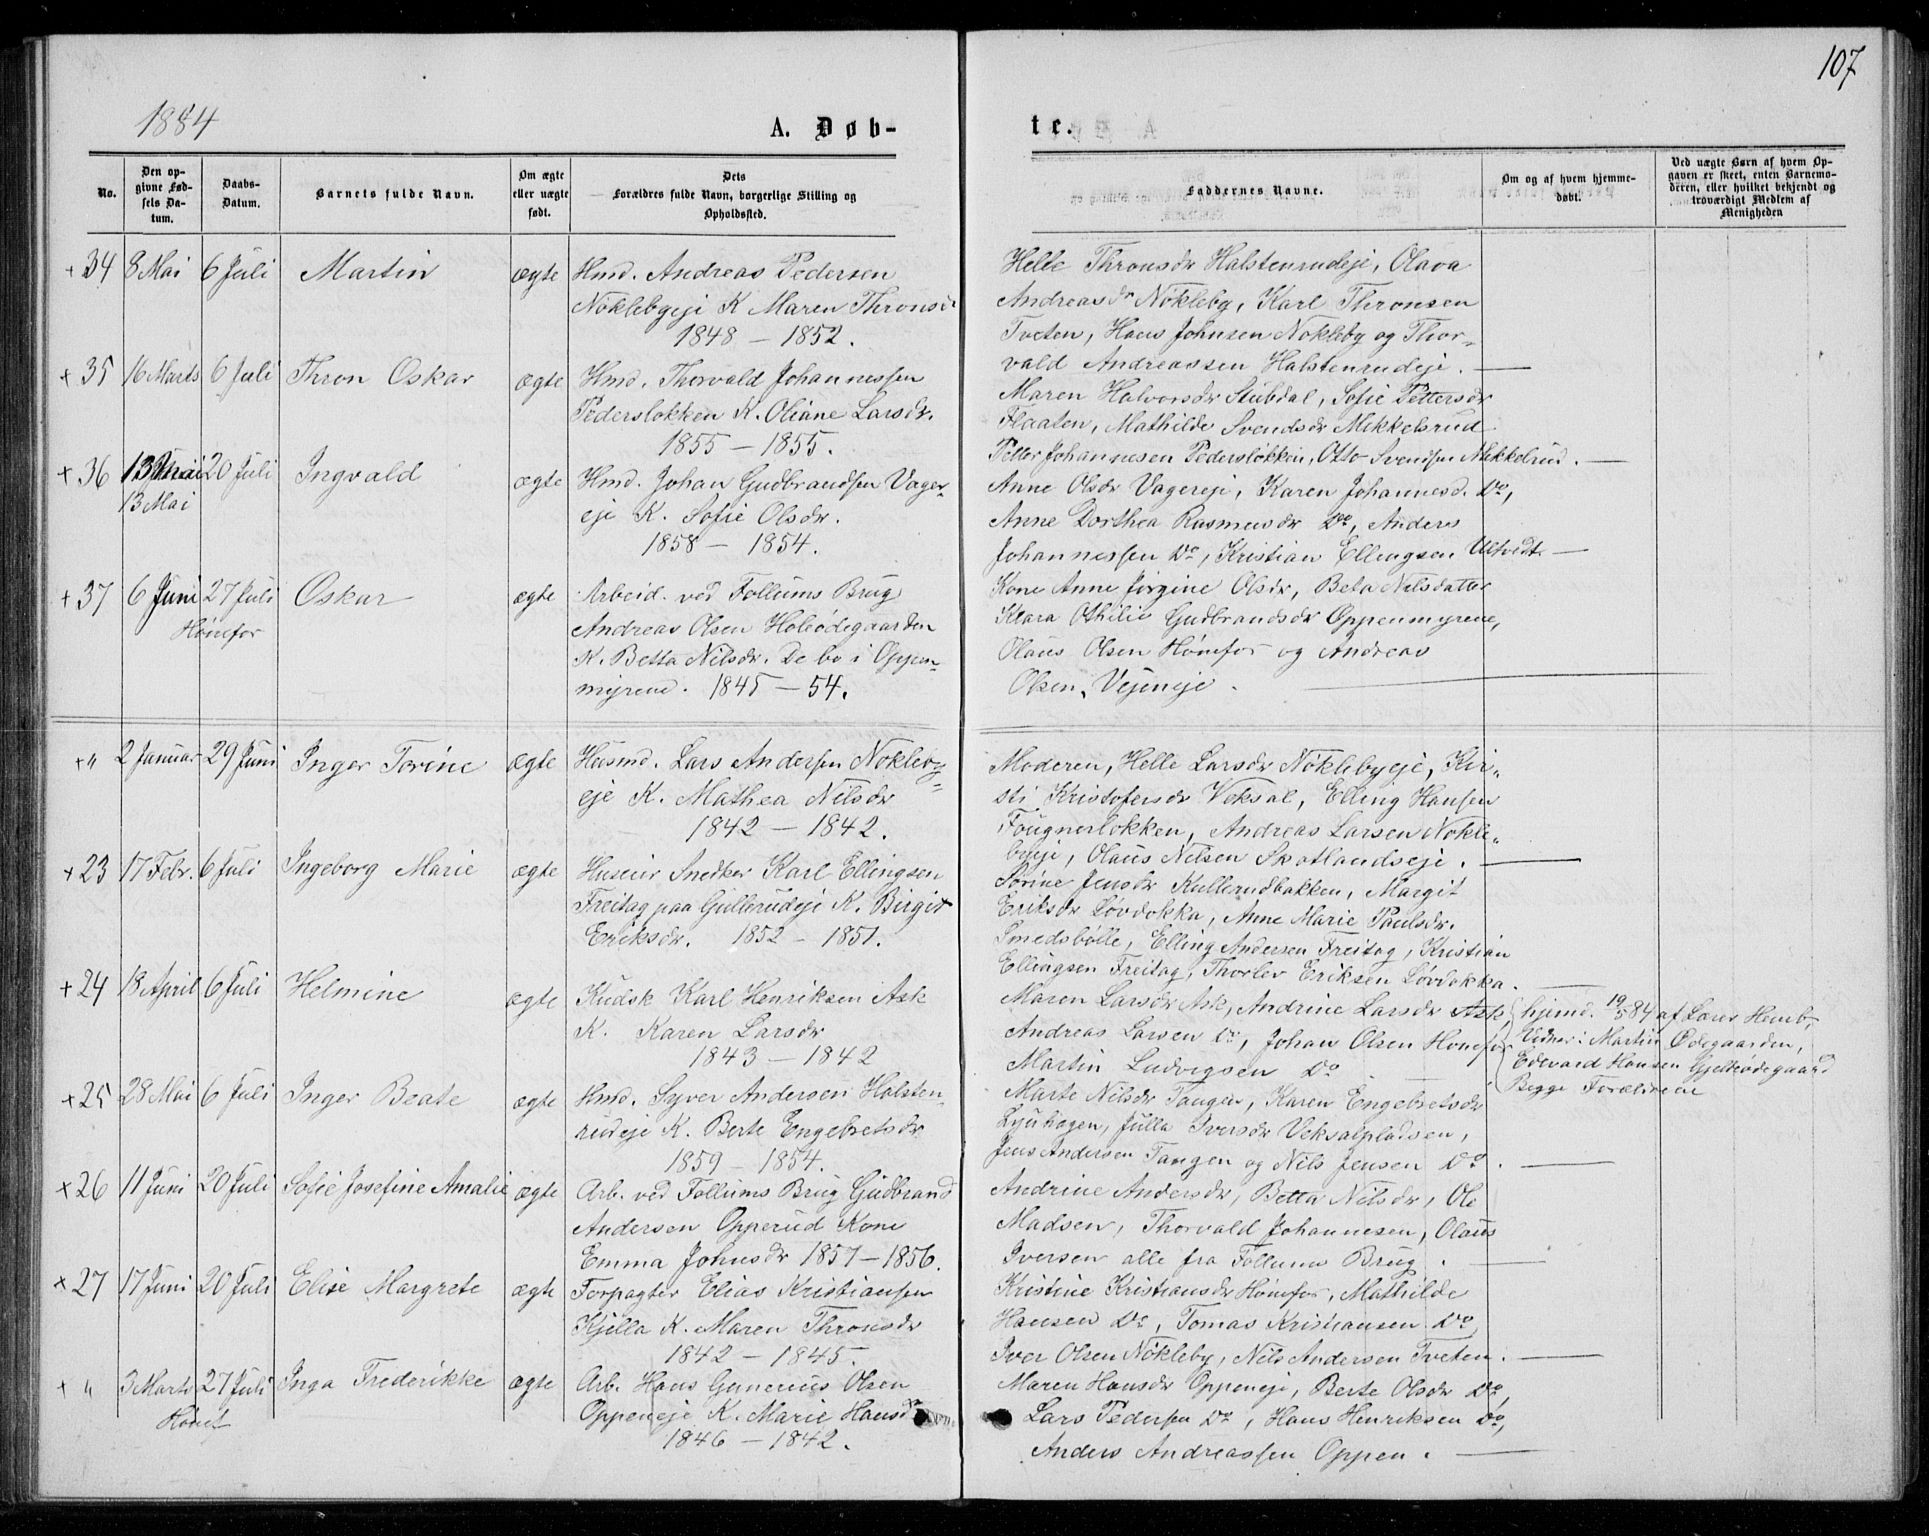 107
1884
A. Døb-
te.
No.
Den opgivne Fødsels Datum.
Daabs-Datum.
Barnets fulde Navn.
Om ægte eller uægte født.
Dets Forældres fulde Navn, borgerlige Stilling og Opholdssted.
Faddernes Navne.
Om og af hvem hjemmedøbt.
Ved uægte Børn af hvem Opgaven er skeet, enten Barnemoderen, eller hvilket bekjendt og troværdigt Medlem af Menigheden
+34 8 Mai 6 Juli Martin ægte Hmd. Andreas Pedersen
Nøklebyeje K Maren Thronsd
1848 – 1852.
Helle Thronsdr Halstenrudeje, Olava
Andreasdr Nökleby, Karl Thronsen
Tveten, Hans Johnsen Nökleby og Thor-
vald Andreassen Halstenrudeje. —
+35 16 Marts 6 Juli Thron Oskar ægte Hmd. Thorvald Johannessen
Pedersløkken K. Oliane Larsdr.
1855 – 1855.
Maren Halvorsdr Stubdal, Sofie Pettersdr
Flaaten, Mathilde Svendsdr Mikkelsrud
Petter Johannesen Pedersløkken, Otto Svendsen Mikkelsrud. —
+36 13 Mai 20 Juli Ingvald ægte Hmd. Johan Gudbrandsen Vager-
13 Mai
eje K. Sofie Olsdr.
1858 – 1854.
Anne Olsdr Vagereje, Karen Johannesd. Do,
Anne Dorthea Rasmusdr Do, Anders
Johannessen Do, Kristian Ellingsen Ultvedt —
+37 6 Juni 27 Juli Oskar ægte Arbeid. ved Follums Brug
Hønefos
Andreas Olsen Holeødegaarden
K. Betta Nilsdr. De bo i Oppen-
myrene. 1845 – 54.
Kone Anne Jørgine Olsdr, Beta Nilsdatter
Klara Othilie Gudbrandsdr Oppenmyrene,
Olaus Olsen Hønefos og Andreas
Olsen, Vejeneje.
+" 2 Januar 29 Juni Inger Torine ægte Husmd. Lars Andersen Nökleby-
eje K. Mathea Nilsdr
1842 – 1842.
Moderen, Helle Larsdr Nöklebyeje, Kir-
sti Kristofersdr Veksal, Elling Hansen
Fougnerløkken, Andreas Larsen Nökle-
byeje, Olaus Nilsen Skotlandseje. —
+23 17 Febr. 6 Juli Ingeborg Marie ægte Huseier Snedker Karl Ellingsen
Freitag paa Gullerudeje K. Birgit
Eriksdr. 1852 – 1851.
Sørine Jensdr Kullerudbakken, Margit
Eriksdr Løvdokka, Anne Marie Paulsdr.
Smedsbølle, Elling Andersen Freitag, Kristian
Ellingsen Freitag, Thorlev Eriksen Løvdokka. —
+24 18 April 6 Juli Helmine ægte Kudsk Karl Henriksen Ask
K. Karen Larsdr
1843 – 1842
Maren Larsdr Ask, Andrine Larsdr Ask,
Andreas Larsen Do, Johan Olsen Honefos
Martin Ludvigsen Do
hjemd. 19/5 84 af Lærer Hemb,
Vidner: Martin Ødegaarden,
Edevard Hansen Gjelbødegaard
Begge Forældrene
+25 28 Mai 6 Juli Inger Beate ægte Hmd. Syver Andersen Halsten-
rudeje K. Berte Engebretsdr
1859 – 1854.
Marte Nilsdr Tangen, Karen Engebretsdr
Lyuhagen, Julla Iversdr Veksalpladsen,
Jens Andersen Tangen og Nils Jensen Do. —
+26 11 Juni 20 Juli Sofie Josefine Amalie ægte Arb. ved Follums Brug Gudbrand
Andersen Opperud Kone
Emma Johnsdr 1857 – 1856.
Andrine Andersdr, Betta Nilsdr, Ole
Madsen, Thorvald Johannesen, Olaus
Iversen alle fra Follums Brug. —
+27 17 Juni 20 Juli Elise Margrete ægte Forpagter Elias Kristiansen
Kjella K. Maren Thronsdr
1842 – 1845.
Kristine Kristiansdr Hønefos, Mathilde
Hansen Do, Tomas Kristiansen Do,
Iver Olsen Nökleby, Nils Andersen Tveten. —
+" 3 Marts 27 Juli Inga Frederikke ægte Arb. Hans Gunerius Olsen
Hønef
Oppeneje K. Marie Hansdr
1846 – 1842.
Maren Hansdr Oppeneje, Berte Olsdr Do,
Lars Pedersen Do, Hans Henriksen Do,
Anders Andreassen Oppen. —